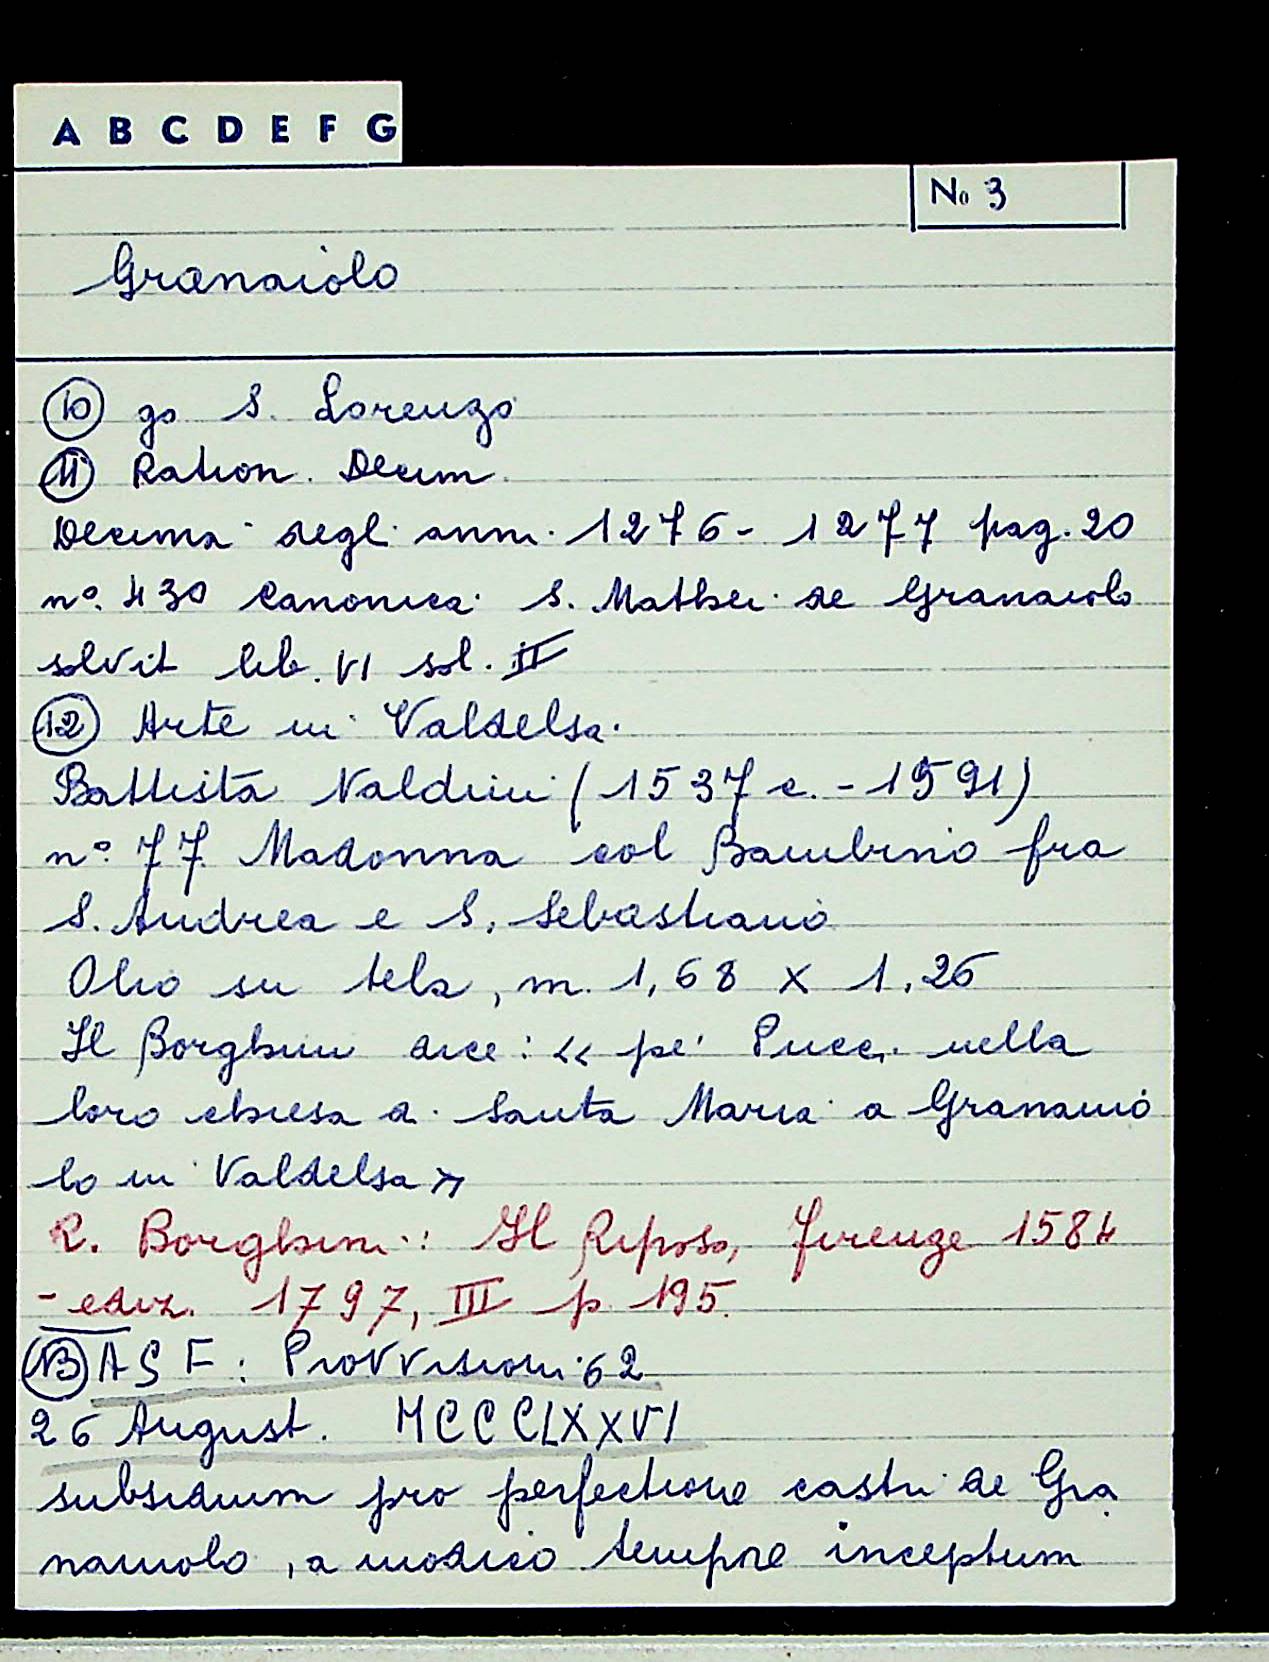 A B C D E F G
No 3
Granaiolo
10 go S. Lorenzo
11 Ration. Decim.
Decima degli anni 1276 - 1277 pag. 20
n°. 430 canonica S. Mathei de Granaiolo
solvit lib. VI sol. II
12 Arte in Valdelsa.
Battista Naldini (1537 c. - 1591)
n° 77 Madonna col Bambino fra
S. Andrea e S. Sebastiano
Olio su tela, m. 1,68 x 1,26
Il Borghini dice: << pe' Pucci nella
loro chiesa di Santa Maria a Granaio
lo in Valdelsa >>
R. Borghini: Il Riposo, Firenze 1584
- ediz. 1797, III p 195.
13 ASF: Provvisioni 62
26 August. MCCCLXXVI
subsidium pro perfectione castri de Gra
naiolo, a modico tempore inceptum